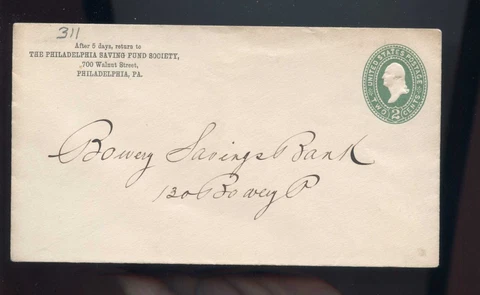 311
After 5 days, return to
THE PHILADELPHIA SAVING FUND SOCIETY,
700 Walnut Street,
PHILADELPHIA, PA.
UNITED STATES POSTAGE
TWO 2 CENTS
Bowery Savings Bank
130 Bowery